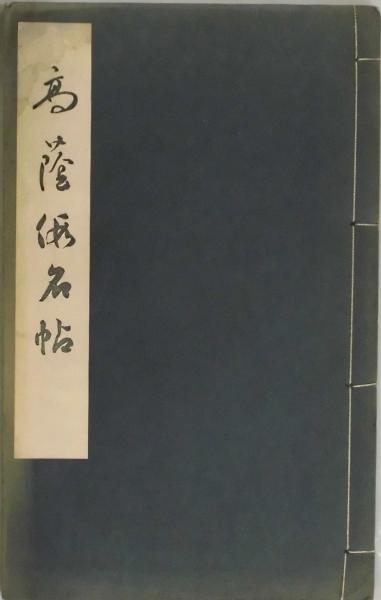 高蔭假名帖